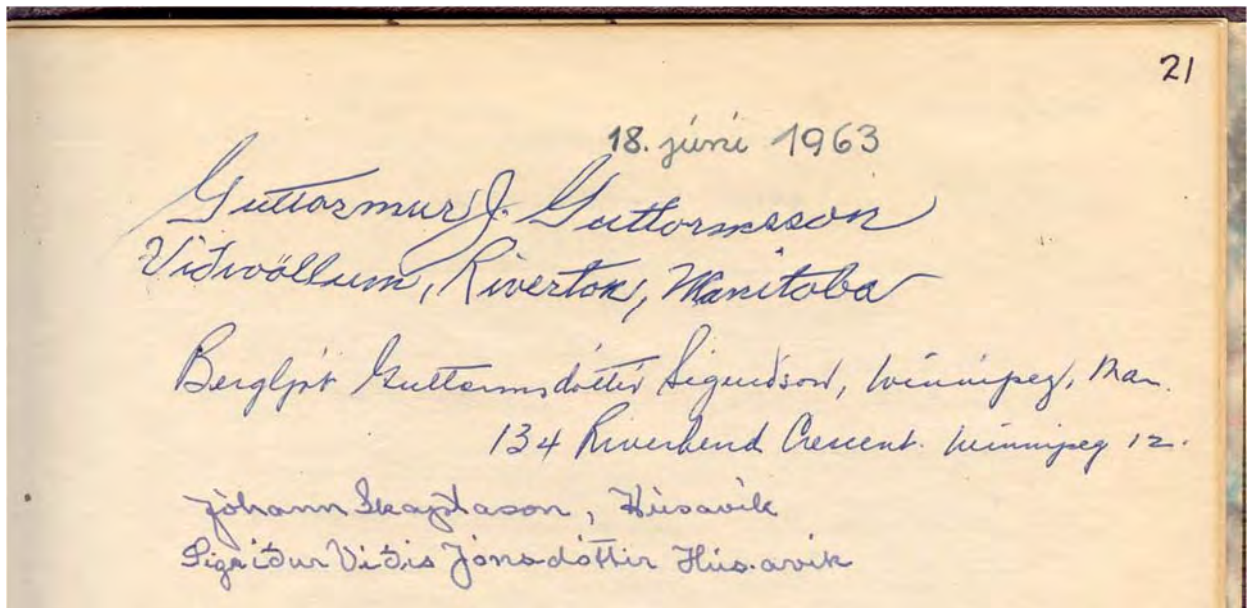 21
18. júní 1963
Guttormur J. Guttormsson
Víðivöllum, Riverton, Manitoba
Bergljót Guttormsdóttir Sigurdson, Winnipeg, Man.
134 Riverbend Crescent. Winnipeg 12.
Jóhann Skaptason, Húsavík
Sigríður Víðis Jónsdóttir Húsavík